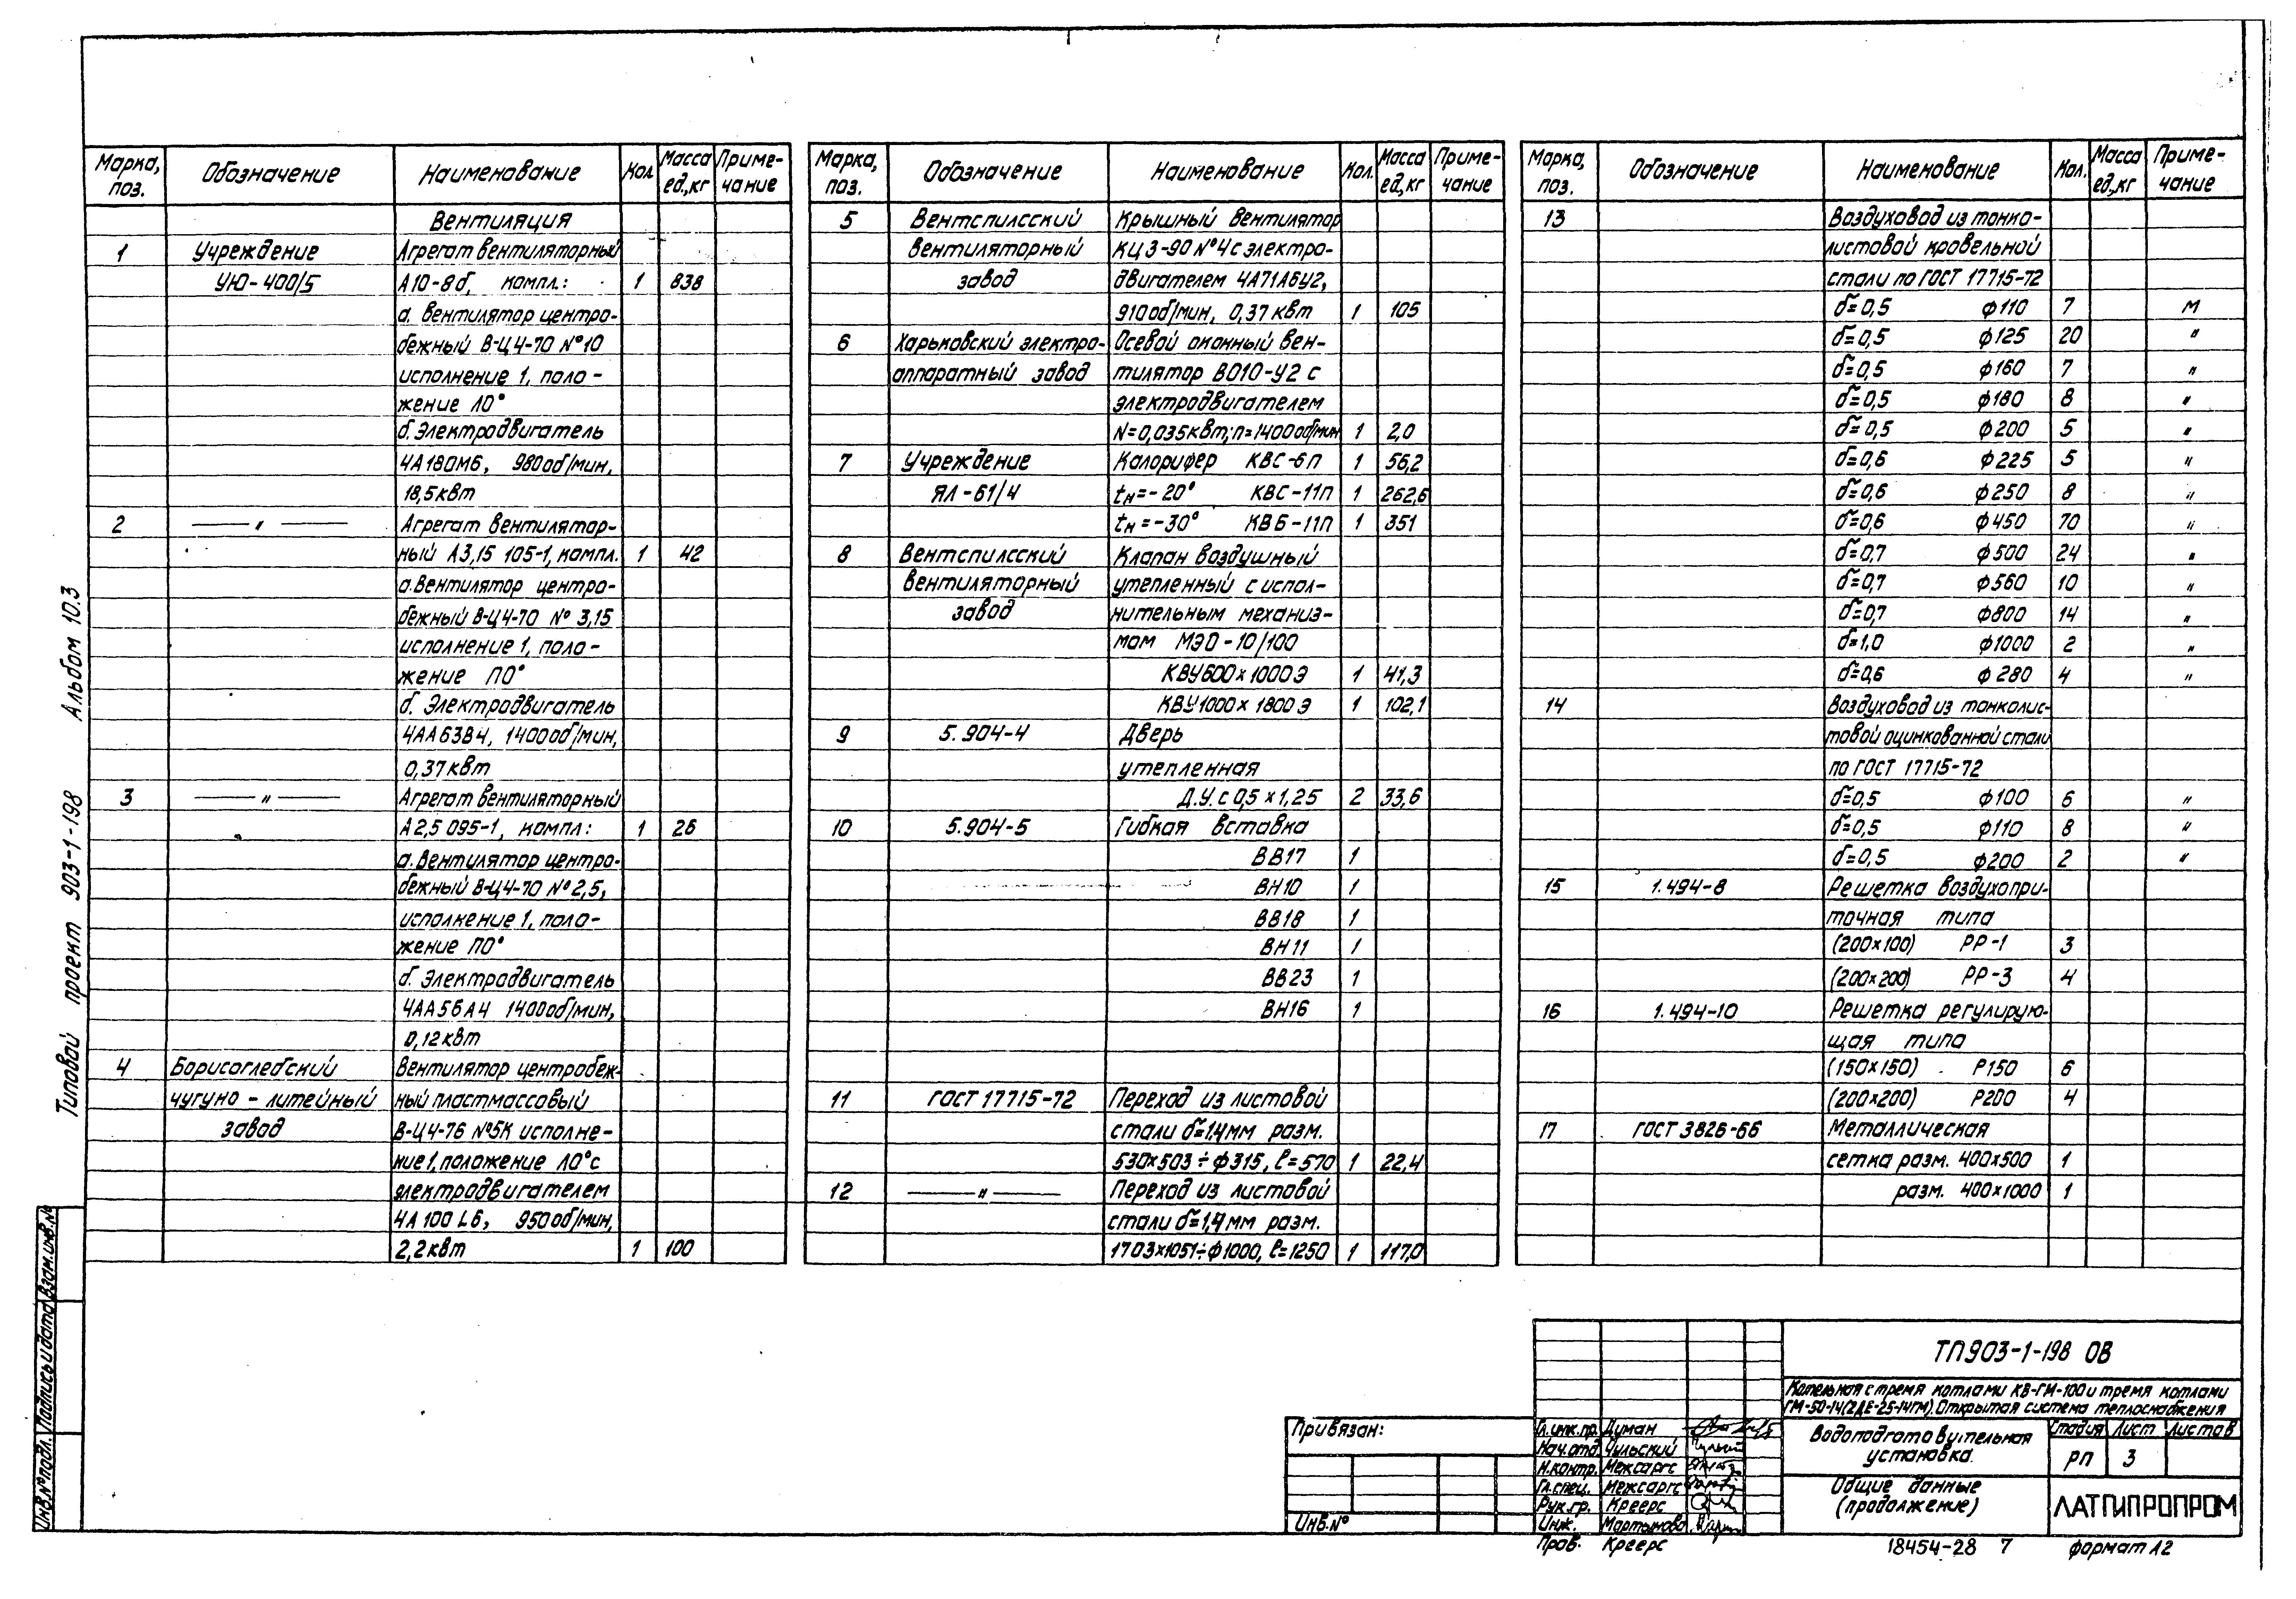 Марка, поз. Обозначение Наименование Кол. Масса ед,кг Примечание
Вентиляция
1 Учреждение Агрегат вентиляторный
УЮ-400/5 А10-8б, компл.: 1 838
а. Вентилятор центро-
бежный В-Ц4-70 №10
исполнение 1, поло-
жение Л0°
б. Электродвигатель
4А180М6, 980об/мин,
18,5квт
2 —— " —— Агрегат вентилятор-
ный А3,15 105-1, компл. 1 42
а.Вентилятор центро-
бежный В-Ц4-70 № 3,15
исполнение 1, поло-
жение П0°
б. Электродвигатель
4АА63В4, 1400об/мин,
0,37квт
3 —— " —— Агрегат вентиляторный
А2,5 095-1, компл: 1 26
а.Вентилятор центро-
бежный В-Ц4-70 №2,5,
исполнение 1, поло-
жение П0°
б. Электродвигатель
4АА56А4 1400об/мин,
0,12квт
4 Борисоглебский Вентилятор центробеж-
чугуно-литейный ный пластмассовый
завод В-Ц4-76 №5К исполне-
ние1, положение Л0°с
электродвигателем
4А100L6, 950об/мин,
2,2квт 1 100
Марка, поз. Обозначение Наименование Кол. Масса ед,кг Примечание
5 Вентспилсский Крышный вентилятор
вентиляторный КЦ3-90 №4с электро-
завод двигателем 4А71А6У2,
910об/мин, 0,37квт 1 105
6 Харьковский электро- Осевой оконный вен-
аппаратный завод тилятор ВО10-У2 с
электродвигателем
N=0,035квт; n=1400об/мин 1 2,0
7 Учреждение Калорифер КВС-6п 1 56,2
ЯЛ-61/4 tн=-20° КВС-11п 1 262,6
tн=-30° КВБ-11п 1 351
8 Вентспилсский Клапан воздушный
вентиляторный утепленный с испол-
завод нительным механиз-
мом МЭО-10/100
КВУ600х1000Э 1 41,3
КВУ1000х1800Э 1 102,1
9 5.904-4 Дверь
утепленная
Д.У.с 0,5х1,25 2 33,6
10 5.904-5 Гибкая вставка
ВВ17 1
ВН10 1
ВВ18 1
ВН11 1
ВВ23 1
ВН16 1
11 ГОСТ 17715-72 Переход из листовой
стали б=1,4мм разм.
530х503÷ф315, ℓ=570 1 22,4
12 —— " —— Переход из листовой
стали б=1,4мм разм.
1703х1051÷ф1000, ℓ=1250 1 117,0
Марка, поз. Обозначение Наименование Кол. Масса ед,кг Примечание
13 Воздуховод из тонко-
листовой кровельной
стали по ГОСТ 17715-72
б=0,5 ф110 7 м
б=0,5 ф125 20 "
б=0,5 ф160 7 "
б=0,5 ф180 8 "
б=0,5 ф200 5 "
б=0,6 ф225 5 "
б=0,6 ф250 8 "
б=0,6 ф450 70 "
б=0,7 ф500 24 "
б=0,7 ф560 10 "
б=0,7 ф800 14 "
б=1,0 ф1000 2 "
б=0,6 ф280 4 "
14 Воздуховод из тонколис-
товой оцинкованной стали
по ГОСТ 17715-72
б=0,5 ф100 6 "
б=0,5 ф110 8 "
б=0,5 ф200 2 "
15 1.494-8 Решетка воздухопри-
точная типа
(200х100) РР-1 3
(200х200) РР-3 4
16 1.494-10 Решетка регулирую-
щая типа
(150х150) Р150 6
(200х200) Р200 4
17 ГОСТ 3826-66 Металлическая
сетка разм. 400х500 1
разм. 400х1000 1
Типовой проект 903-1-198 Альбом 10.3
Инв.№подл. Подпись и дата Взам.инв.№
Привязан:
Инв.№
Гл.инж.пр. Думан
Нач.отд. Чульский
Н.контр. Межсаргс
Гл.спец. Межсаргс
Рук.гр. Креерс
Инж. Мартынова
Пров. Креерс
ТП903-1-198 ОВ
Котельная с тремя котлами КВ-ГМ-100 и тремя котлами
ГМ-50-14(2ДЕ-25-14ГМ). Открытая система теплоснабжения
Водоподготовительная установка.
Стадия Лист Листов
РП 3
Общие данные (продолжение)
ЛАТГИПРОПРОМ
18454-28 7 формат 12